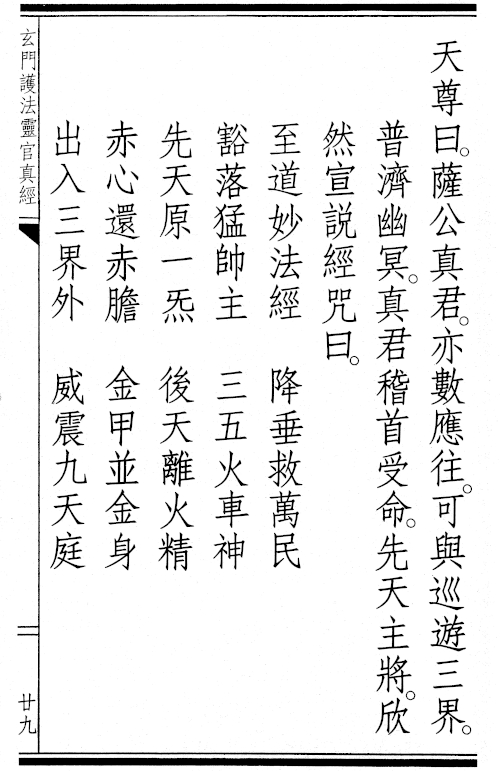 天尊曰。薩公真君。亦數應往。可與巡遊三界。
普濟幽冥。真君稽首受命。先天主將。欣
然宣説經咒曰。
至道妙法經　降垂救萬民
豁落猛帥主　三五火車神
先天原一炁　後天離火精
赤心還赤膽　金甲並金身
出入三界外　威震九天庭
玄門護法靈官真經
廿九